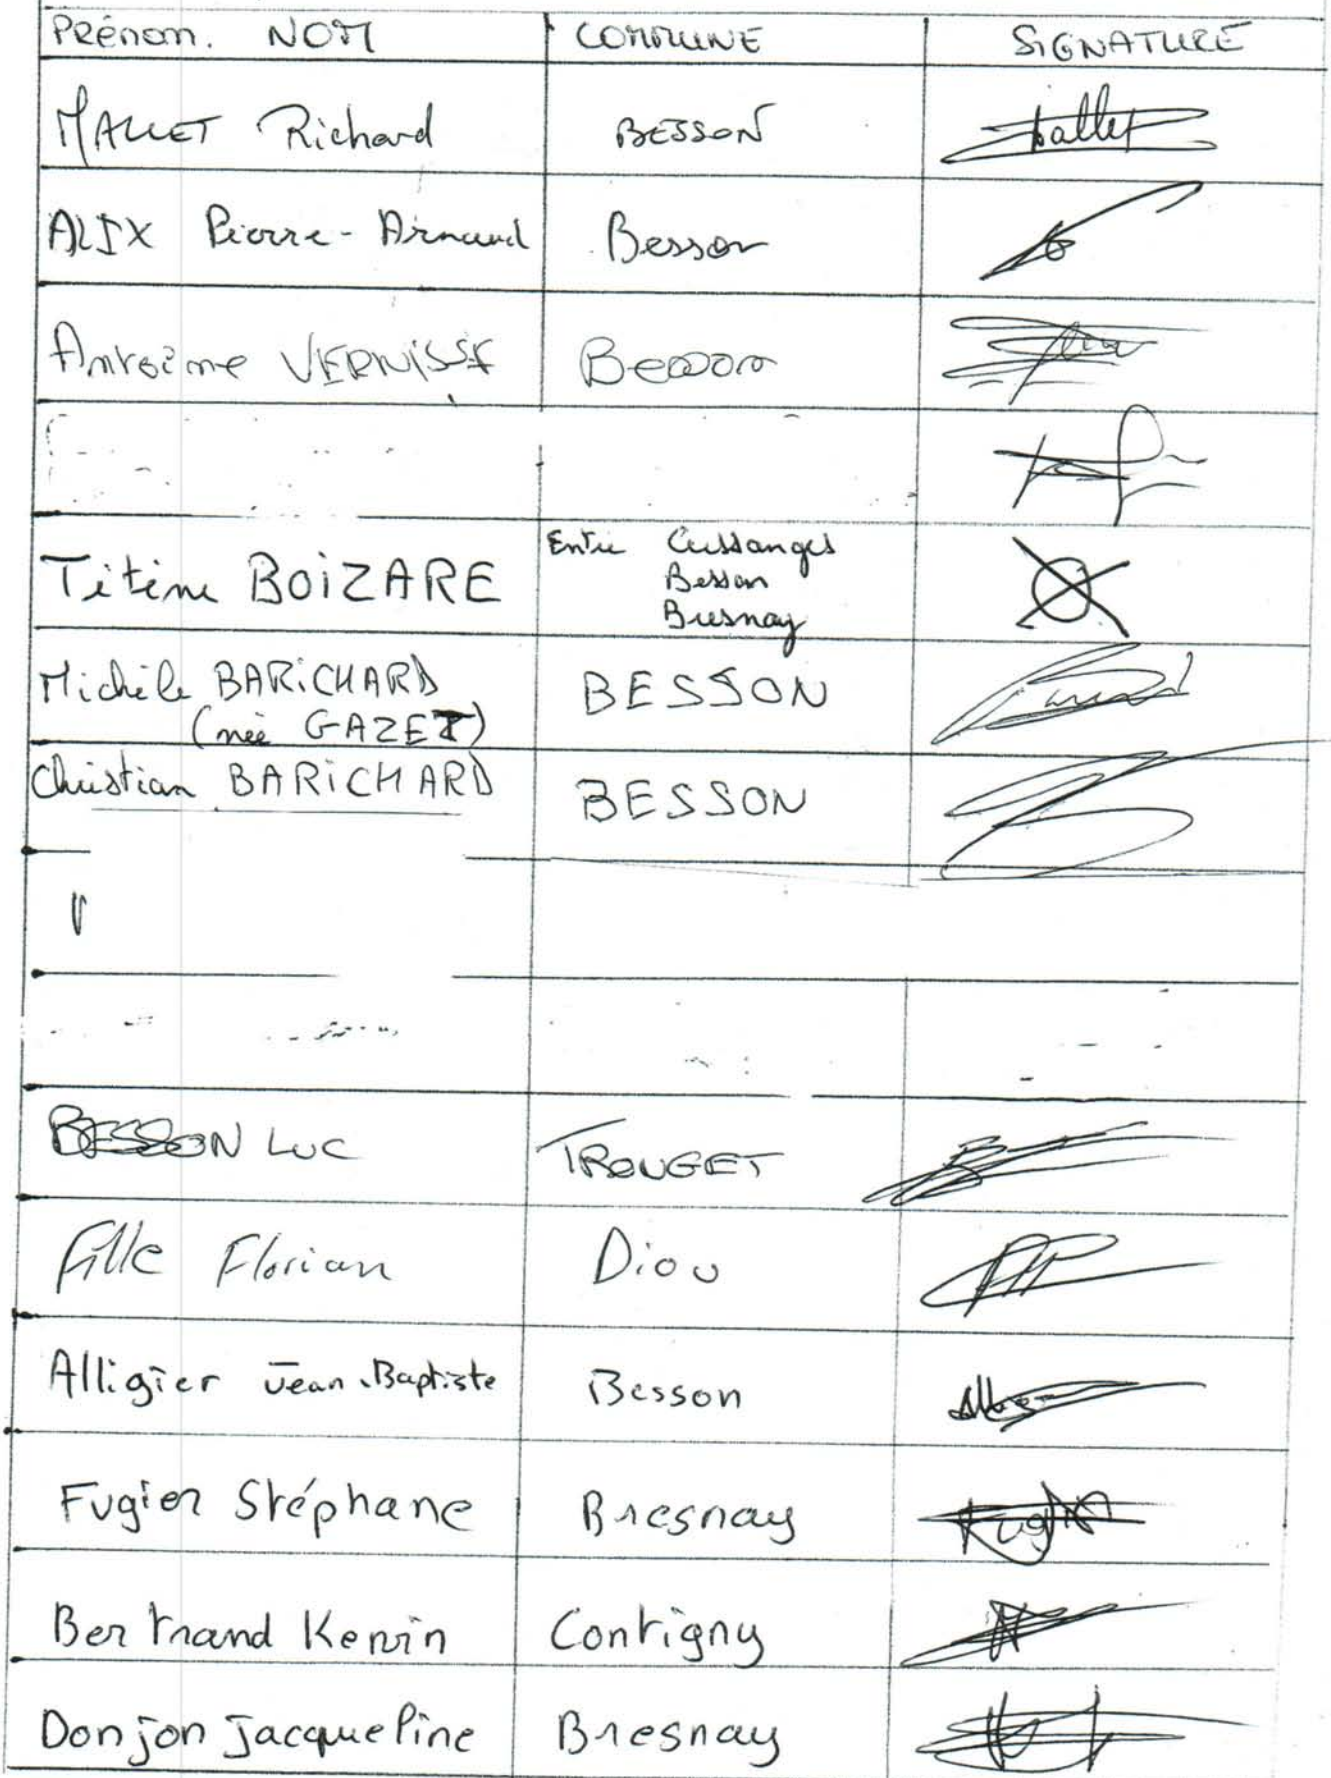 Prénom. NOM COMMUNE SIGNATURE
MALLET Richard BESSON Mallet
ALIX Pierre-Arnaud Besson
Antoine VERNISSE Besson
Titine BOIZARE Entre Cussanges
Besson
Bresnay
Michèle BARICHARD BESSON
(née GAZET)
Christian BARICHARD BESSON
BESSON LUC TROUGET
Fille Florian Diou
Alligier Jean-Baptiste Besson
Fugier Stéphane Bresnay
Bertrand Kevin Contigny
Donjon Jacqueline Bresnay